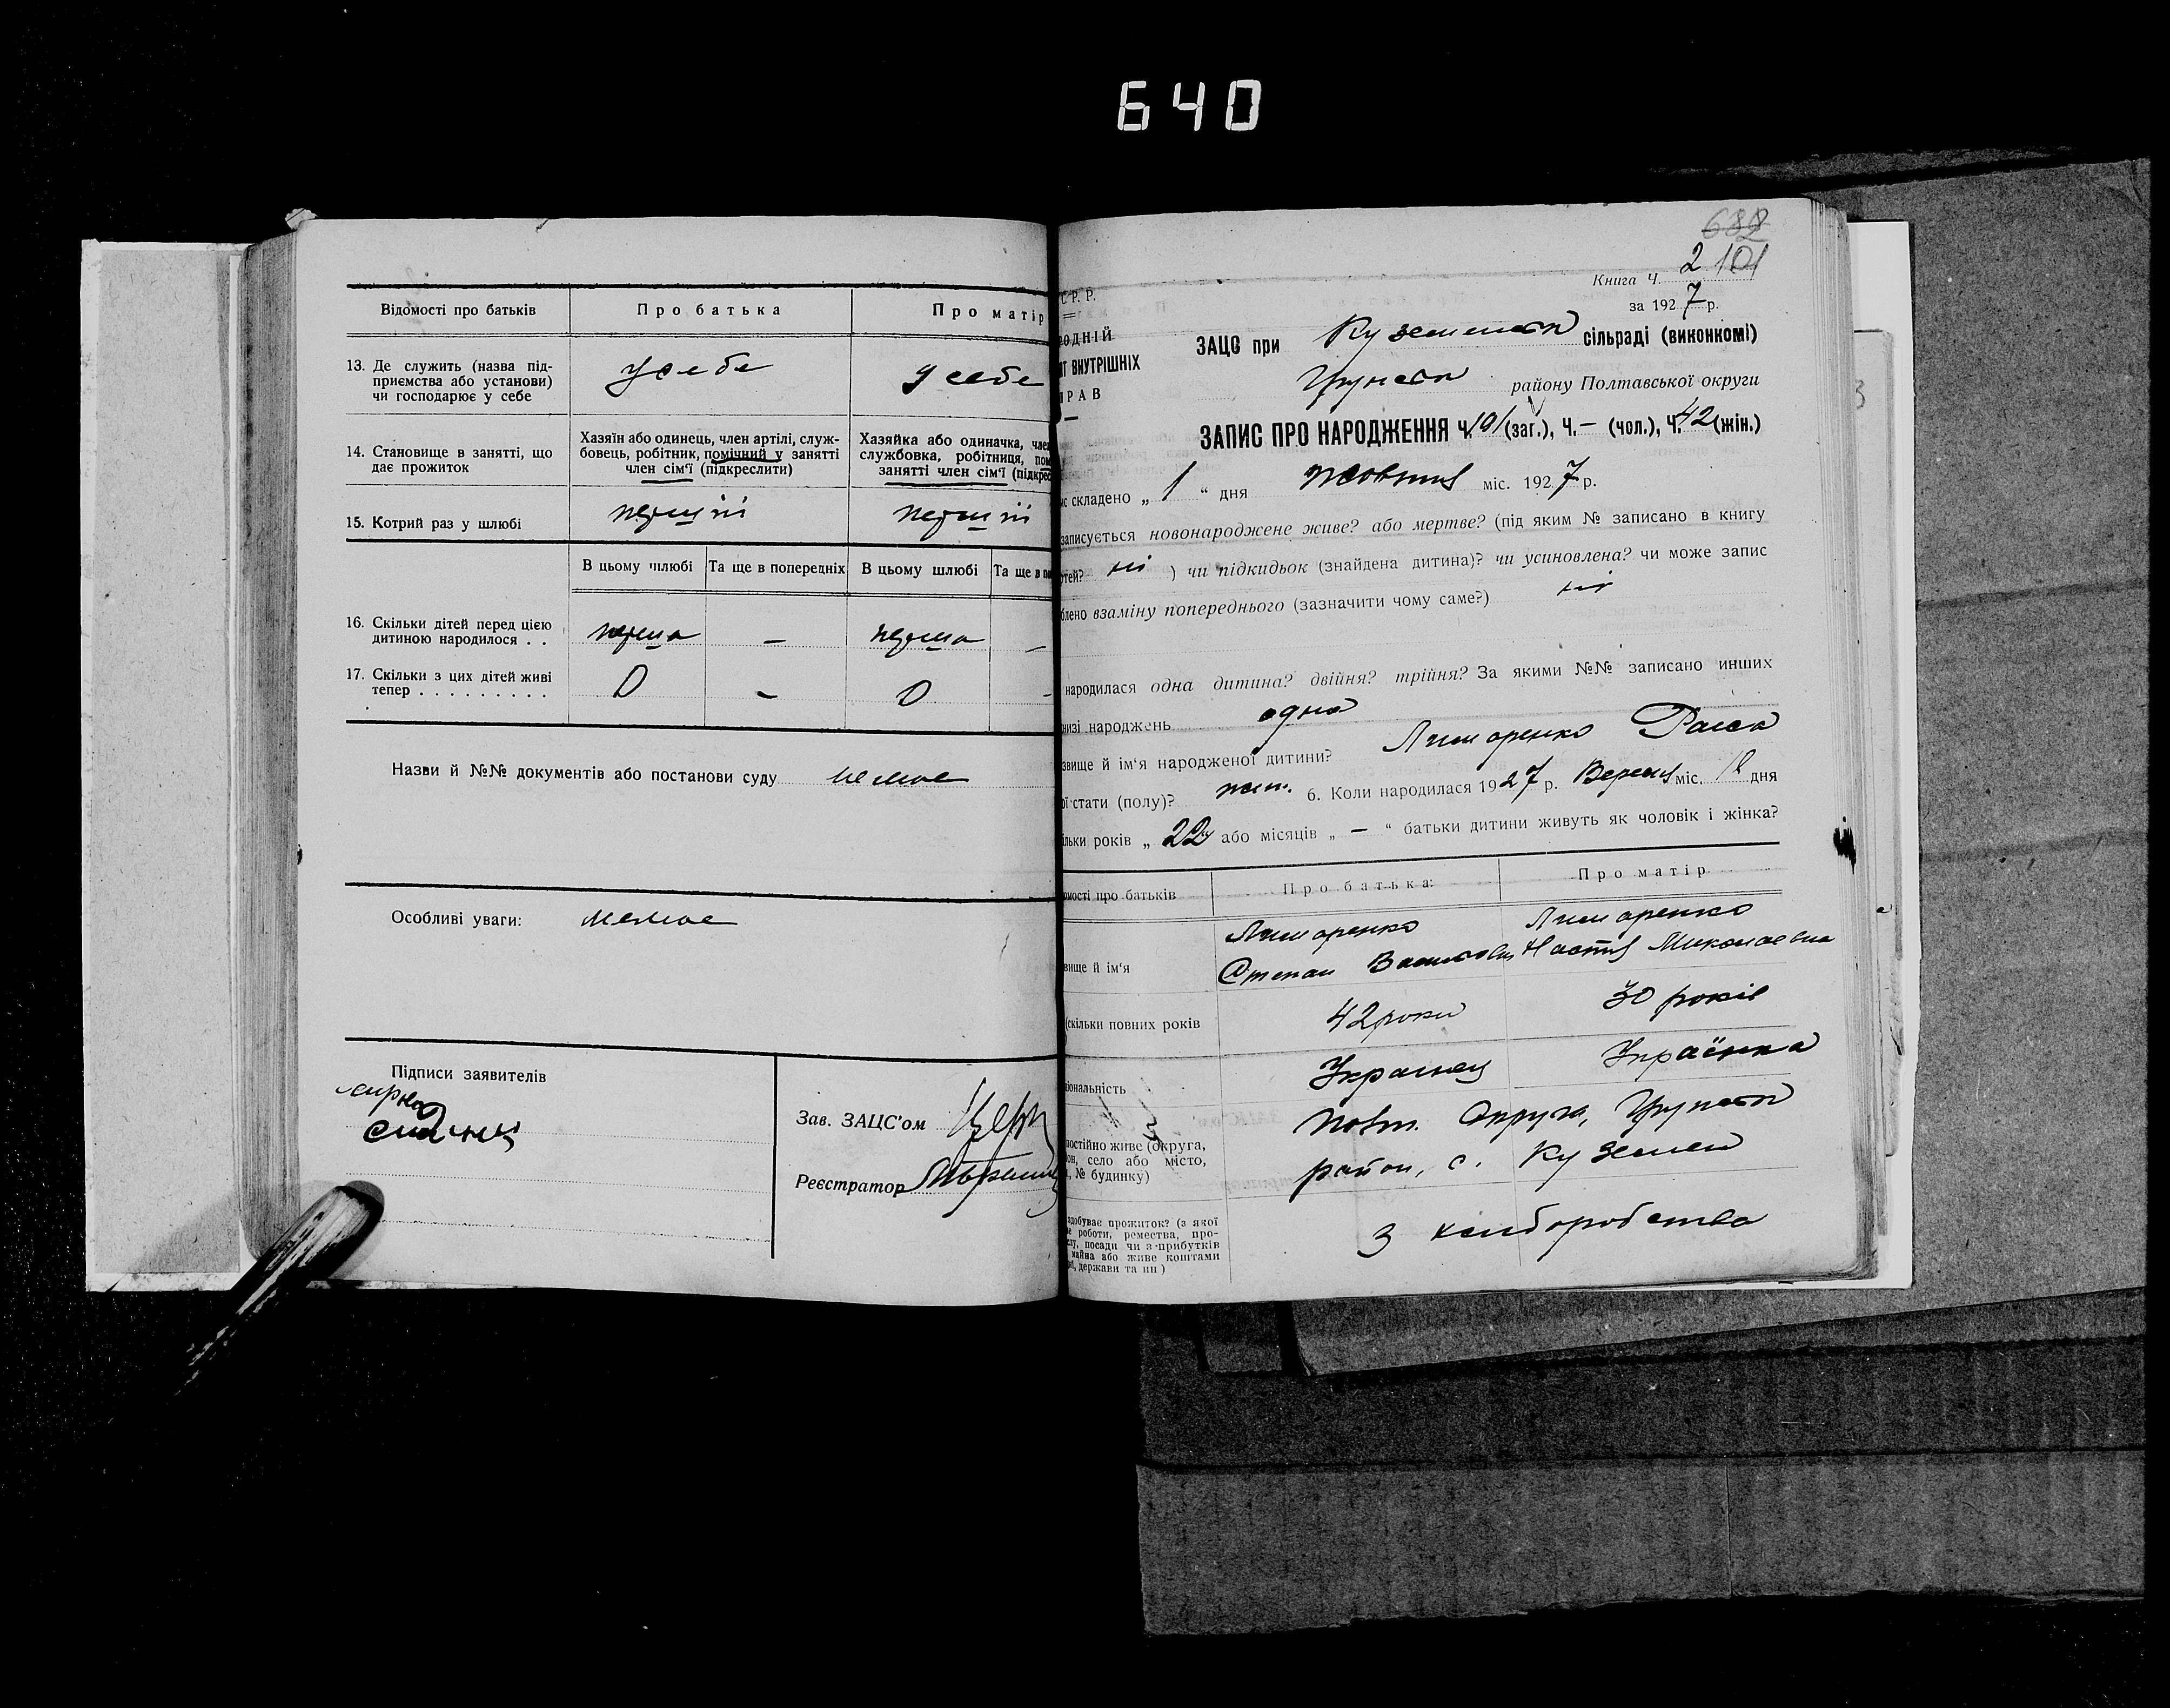 640
Відомості про батьків
Про батька
Про матір
13. Де служить (назва під-
приємства або установи)
чи господарює у себе
у себе
у себе
14. Становище в занятті, що
дає прожиток
Хазяїн або одинець, член артілі, служ-
бовець, робітник, помічний у занятті
член сім'ї (підкреслити)
Хазяйка або одиначка, член
службовка, робітниця, пом
занятті член сім'ї (підкрес
15. Котрий раз у шлюбі
перший
перший
В цьому шлюбі
Та ще в попередніх
В цьому шлюбі
Та ще в по
16. Скільки дітей перед цією
дитиною народилося . .
перша
—
перша
—
17. Скільки з цих дітей живі
тепер . . . . . . . . .
0
—
0
—
Назви й №№ документів або постанови суду немає
Особливі уваги: немає
Підписи заявителів
Зав. ЗАЦС'ом
Реєстратор
682
Книга Ч. 2 101
за 1927 р.
С Р. Р.
ОДНІЙ
АТ ВНУТРІШНІХ
ПРАВ
ЗАЦС при сільраді (виконкомі)
району Полтавської округи
ЗАПИС ПРО НАРОДЖЕННЯ Ч. 101 (заг.), Ч. — (чол.), Ч. 42 (жін.)
с складено „ 1 “ дня жовтня міс. 1927 р.
записується новонароджене живе? або мертве? (під яким № записано в книгу
ртей? ні ) чи підкидьок (знайдена дитина)? чи усиновлена? чи може запис
блено взаміну попереднього (зазначити чому саме?) ні
народилася одна дитина? двійня? трійня? За якими №№ записано инших
низі народжень одна
звище й ім'я народженої дитини? Лимаренко Раїса
ої стати (полу)? жін. 6. Коли народилася 1927 р. Вересня міс. 18 дня
ільки років „ 22 або місяців „ — “ батьки дитини живуть як чоловік і жінка?
омості про батьків
Про батька:
Про матір
вище й ім'я
Лимаренко
Степан
Лимаренко
Настя Миколаевна
(скільки повних років
42 роки
30 років
іональність
Українец
Українка
постійно живе (округа,
он, село або місто,
, № будинку)
Полт. Округа,
район, с. Куземен
здобуває прожиток? (з якої
е роботи, ремества, про-
лу, посади чи з прибутків
майна або живе коштами
ої, держави та ин )
З хліборобства